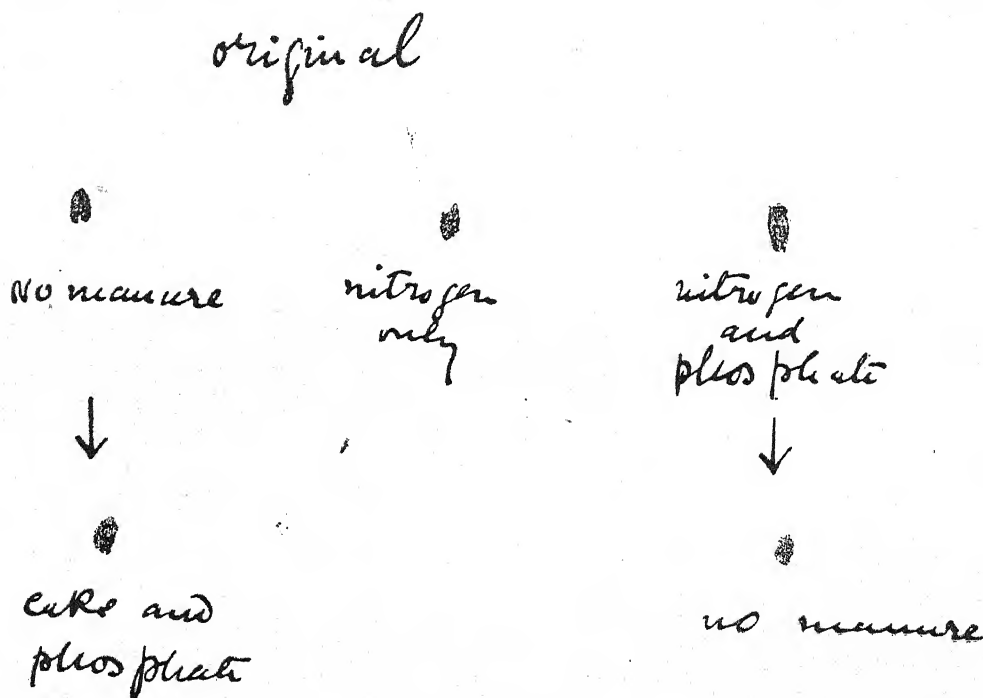 original
No manure
nitrogen
only
nitrogen
and
phosphate
cake and
phosphate
no manure